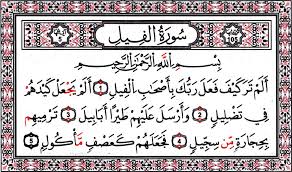 105 سُورَةُ الفِيلِ 5
بِسْمِ اللَّهِ الرَّحْمَنِ الرَّحِيمِ
أَلَمْ تَرَ كَيْفَ فَعَلَ رَبُّكَ بِأَصْحَابِ الْفِيلِ 1 أَلَمْ يَجْعَلْ كَيْدَهُمْ
فِي تَضْلِيلٍ 2 وَأَرْسَلَ عَلَيْهِمْ طَيْرًا أَبَابِيلَ 3 تَرْمِيهِم
بِحِجَارَةٍ مِّن سِجِّيلٍ 4 فَجَعَلَهُمْ كَعَصْفٍ مَّأْكُولٍ 5